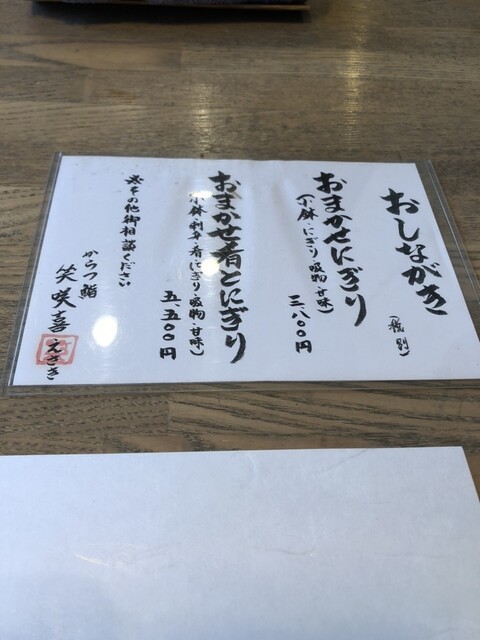 おしながき
(税別)
おまかせにぎり
(小鉢・にぎり・吸物・甘味)
三、八〇〇円
おまかせ肴とにぎり
小鉢 刺身 肴 にぎり 吸物・甘味)
五、五〇〇円
※その他御相談ください
からつ鮨
笑咲喜
えさき